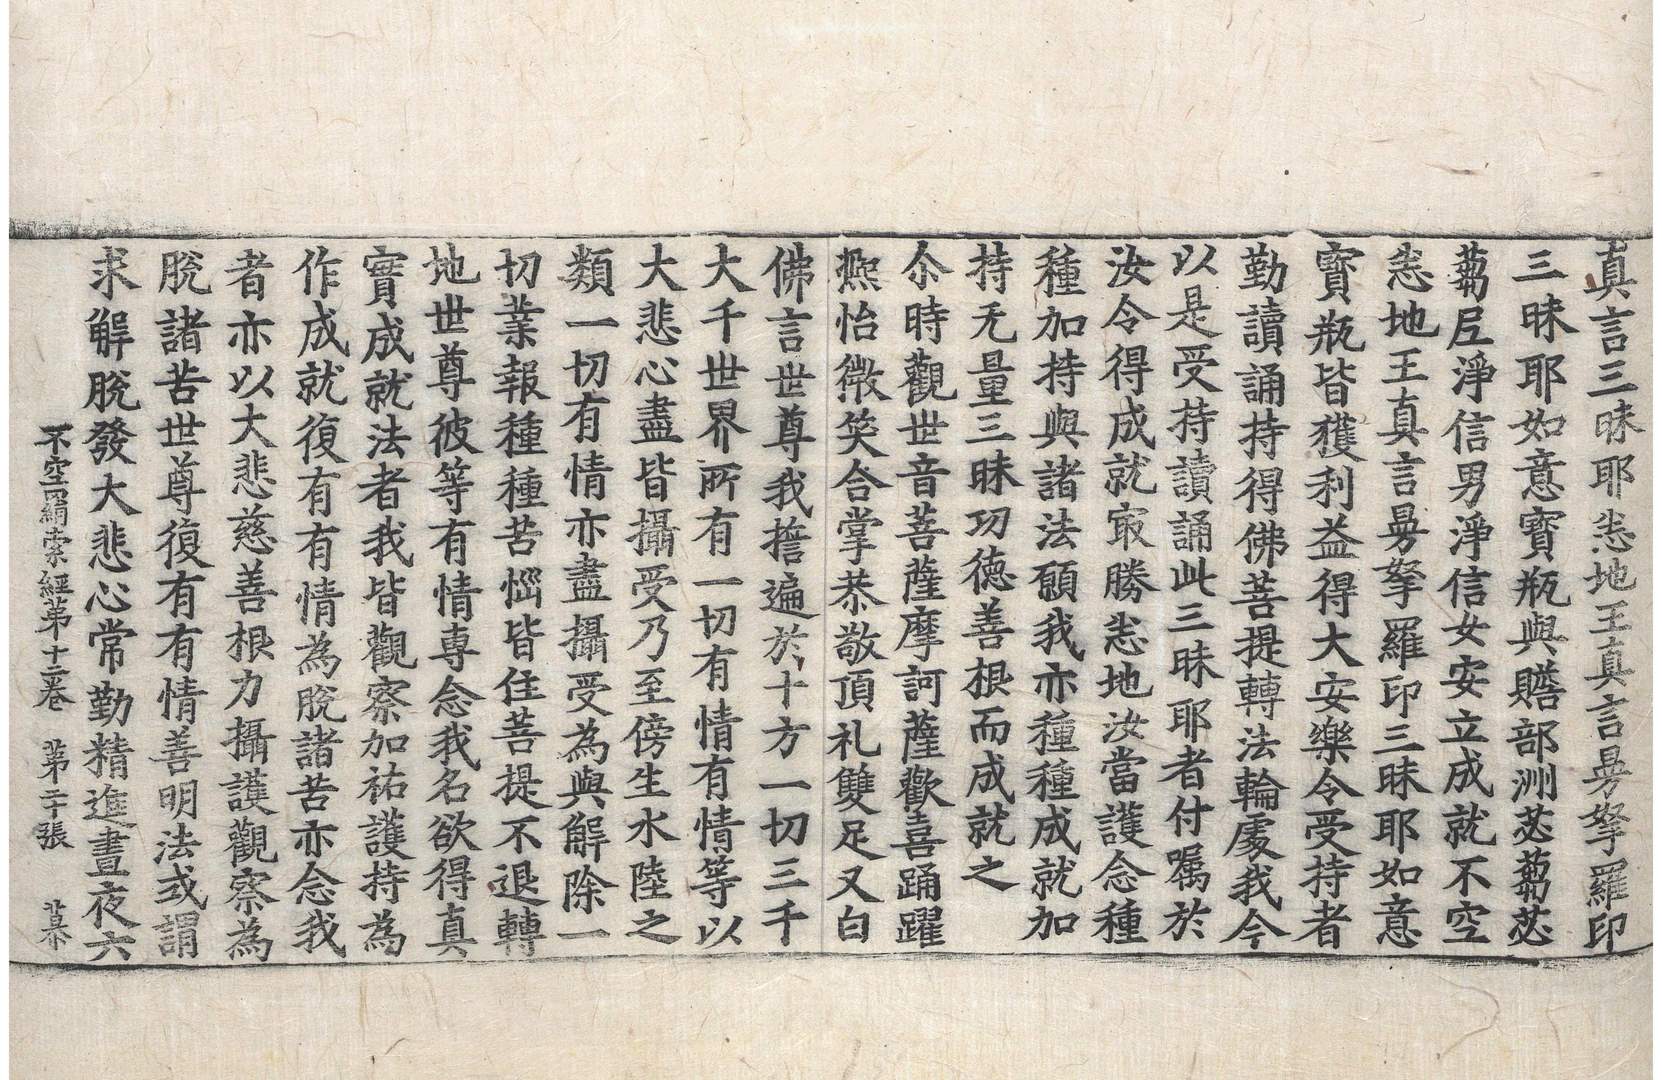 真言三昧耶悉地王真言曼拏羅印
三昧耶如意寶瓶與贍部洲苾蒭苾
蒭尼淨信男淨信女安立成就不空
悉地王真言曼拏羅印三昧耶如意
寶瓶皆獲利益得大安樂令受持者
勤讀誦持得佛菩提轉法輪處我今
以是受持讀誦此三昧耶者付囑於
汝令得成就㝡勝悉地汝當護念種
種加持與諸法願我亦種種成就加
持无量三昧功德善根而成就之
尒時觀世音菩薩摩訶薩歡喜踊躍
熙怡微笑合掌恭敬頂礼雙足又白
佛言世尊我擔遍於十方一切三千
大千世界所有一切有情有情等以
大悲心盡皆攝受乃至傍生水陸之
類一切有情亦盡攝受為與解除一
切業報種種苦惱皆住菩提不退轉
地世尊彼等有情專念我名欲得真
實成就法者我皆觀察加祐護持為
作成就復有有情為脫諸苦亦念我
者亦以大悲慈善根力攝護觀察為
脫諸苦世尊復有有情善明法或謂
求解脫發大悲心常勤精進晝夜六
不空羂索經第十二卷 第二十張 慕